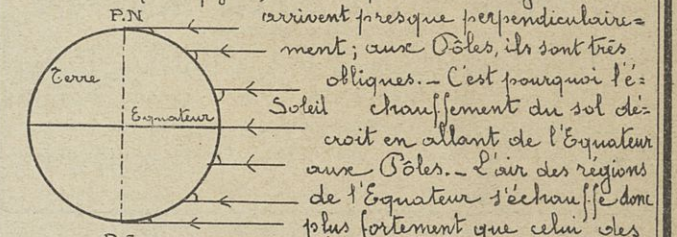 P.N
arrivent presque perpendiculaire=
ment ; aux Pôles, ils sont très
Terre
obliques. _ C'est pourquoi l'é=
Equateur
Soleil
chauffement du sol dé=
croit en allant de l'Equateur
aux Pôles. _ L'air des régions
de l'Equateur s'échauffe donc
plus fortement que celui des